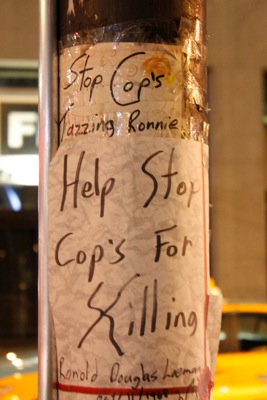 Stop Cop's
Tazzing Ronnie
Help Stop
Cop's For
Killing
Ronald Douglas
F